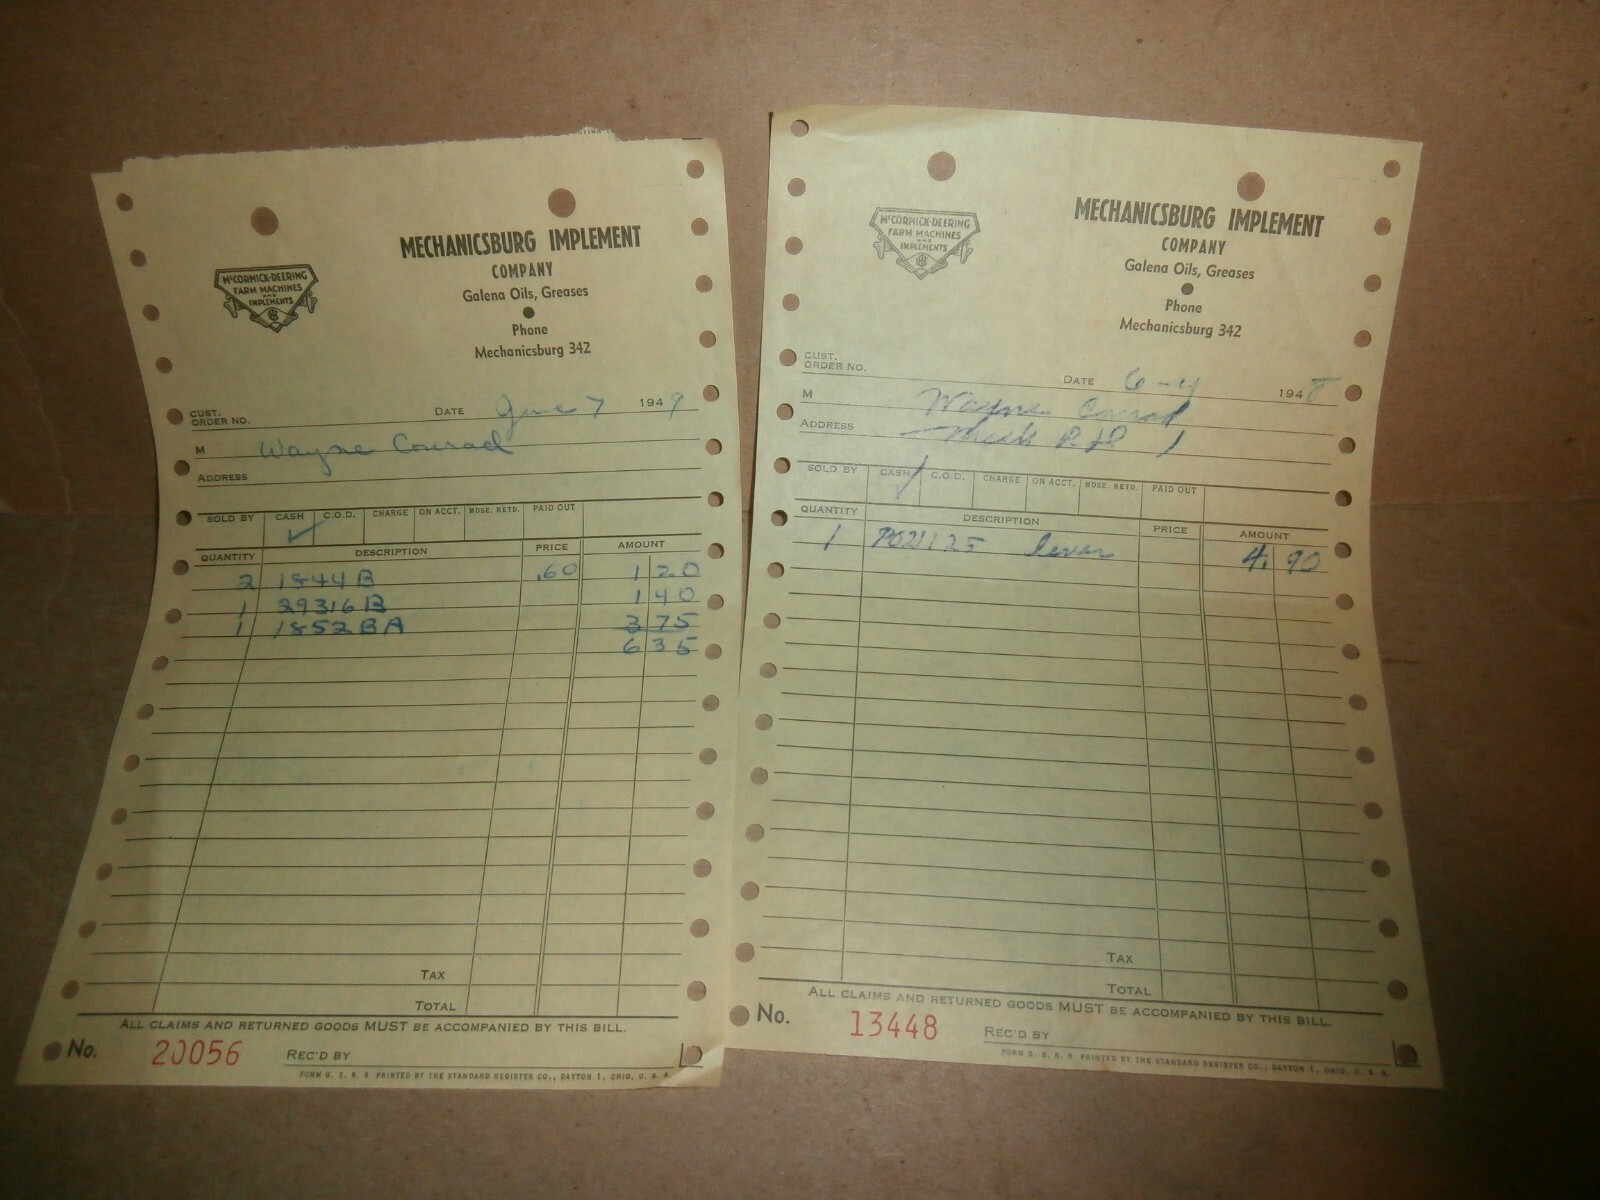 McCORMICK-DEERING
FARM MACHINES
AND
IMPLEMENTS
IHC
MECHANICSBURG IMPLEMENT
COMPANY
Galena Oils, Greases
Phone
Mechanicsburg 342
CUST.
ORDER NO.
DATE June 7 1949
M Wayne Conrad
ADDRESS
SOLD BY CASH ✓ C.O.D. CHARGE ON ACCT. MDSE. RETD. PAID OUT
QUANTITY DESCRIPTION PRICE AMOUNT
2 1844B .60 1 20
1 29316B 1 40
1 1852BA 3 75
6 35
TAX
TOTAL
ALL CLAIMS AND RETURNED GOODS MUST BE ACCOMPANIED BY THIS BILL.
No. 20056 REC'D BY
FORM G. S. R. S PRINTED BY THE STANDARD REGISTER CO., DAYTON 1, OHIO, U. S. A.
McCORMICK-DEERING
FARM MACHINES
AND
IMPLEMENTS
IHC
MECHANICSBURG IMPLEMENT
COMPANY
Galena Oils, Greases
Phone
Mechanicsburg 342
CUST.
ORDER NO.
DATE 6-4 1948
M Wayne Conrad
ADDRESS 1
SOLD BY CASH ✓ C.O.D. CHARGE ON ACCT. MDSE. RETD. PAID OUT
QUANTITY DESCRIPTION PRICE AMOUNT
1 lever 4. 90
TAX
TOTAL
ALL CLAIMS AND RETURNED GOODS MUST BE ACCOMPANIED BY THIS BILL.
No. 13448 REC'D BY
FORM G. S. R. S PRINTED BY THE STANDARD REGISTER CO., DAYTON 1, OHIO, U. S. A.